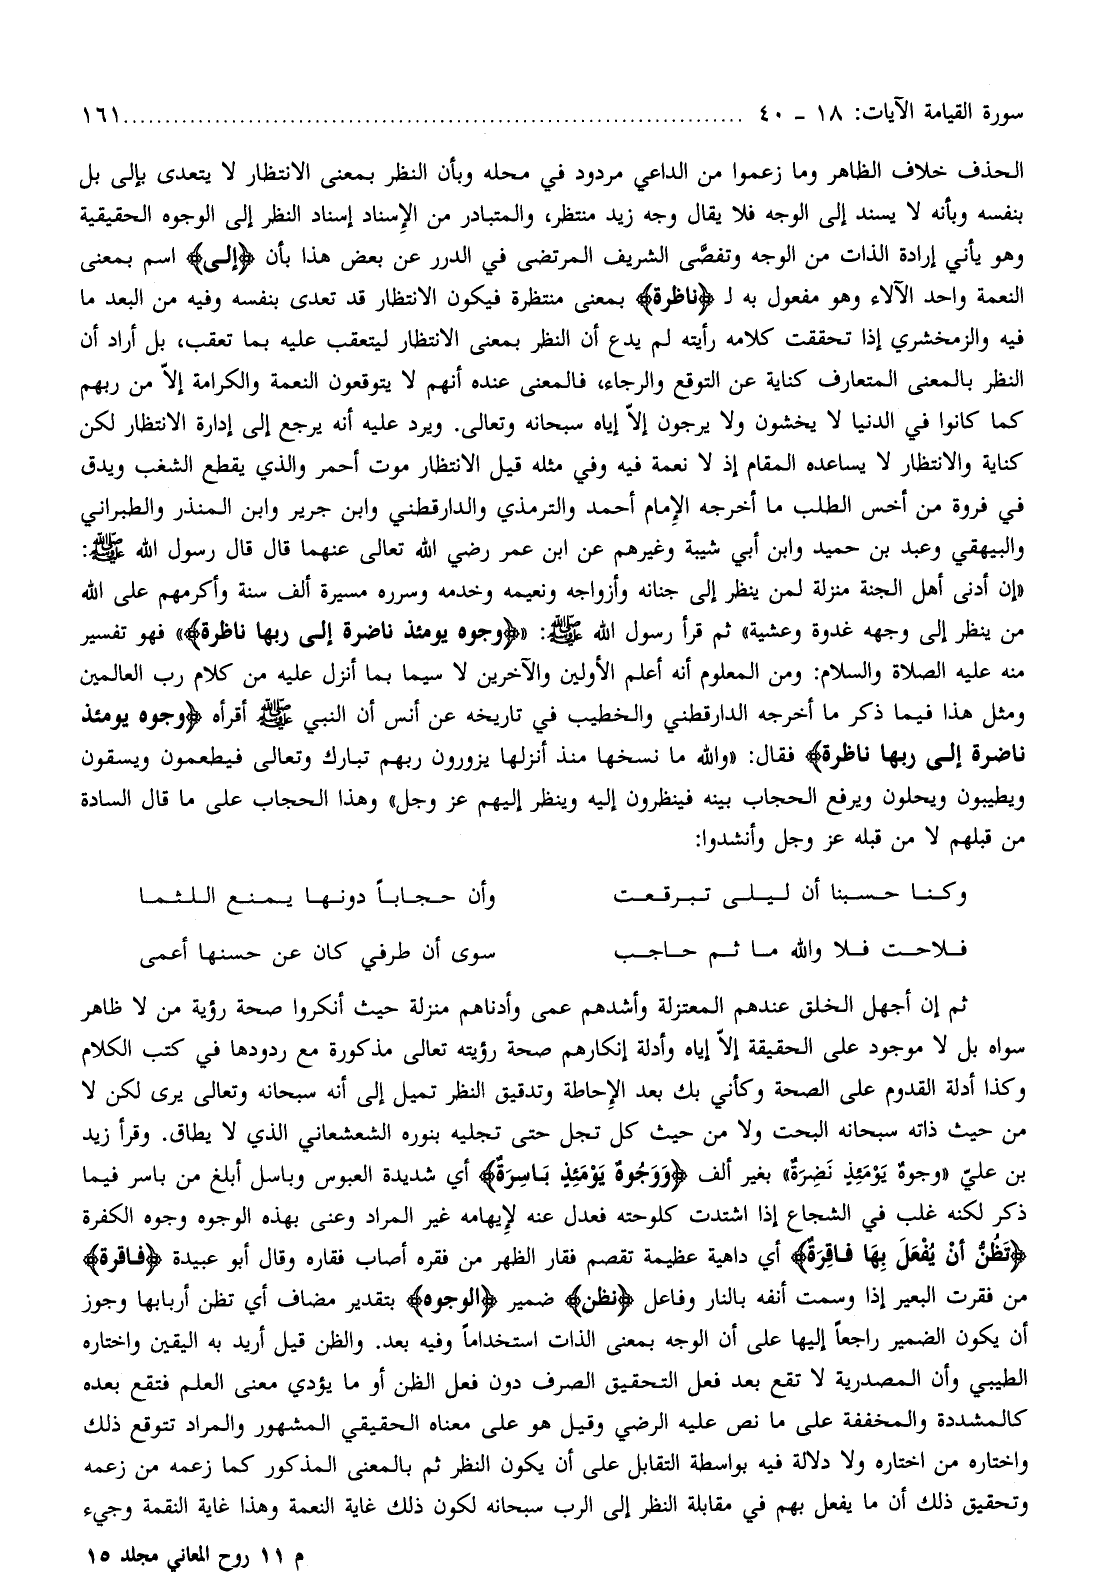 سورة القيامة الآيات: ١٨ - ٤٠ ........................................................................... ١٦١
الحذف خلاف الظاهر وما زعموا من الداعي مردود في محله وبأن النظر بمعنى الانتظار لا يتعدى بإلى بل
بنفسه وبأنه لا يسند إلى الوجه فلا يقال وجه زيد منتظر، والمتبادر من الإسناد إسناد النظر إلى الوجوه الحقيقية
وهو يأبي إرادة الذات من الوجه وتفصَّى الشريف المرتضى في الدرر عن بعض هذا بأن ﴿إلى﴾ اسم بمعنى
النعمة واحد الآلاء وهو مفعول به لـ ﴿ناظرة﴾ بمعنى منتظرة فيكون الانتظار قد تعدى بنفسه وفيه من البعد ما
فيه والزمخشري إذا تحققت كلامه رأيته لم يدع أن النظر بمعنى الانتظار ليتعقب عليه بما تعقب، بل أراد أن
النظر بالمعنى المتعارف كناية عن التوقع والرجاء، فالمعنى عنده أنهم لا يتوقعون النعمة والكرامة إلاّ من ربهم
كما كانوا في الدنيا لا يخشون ولا يرجون إلاّ إياه سبحانه وتعالى. ويرد عليه أنه يرجع إلى إدارة الانتظار لكن
كناية والانتظار لا يساعده المقام إذ لا نعمة فيه وفي مثله قيل الانتظار موت أحمر والذي يقطع الشغب ويدق
في فروة من أخس الطلب ما أخرجه الإمام أحمد والترمذي والدارقطني وابن جرير وابن المنذر والطبراني
والبيهقي وعبد بن حميد وابن أبي شيبة وغيرهم عن ابن عمر رضي الله تعالى عنهما قال قال رسول الله ﷺ:
«إن أدنى أهل الجنة منزلة لمن ينظر إلى جنانه وأزواجه ونعيمه وخدمه وسرره مسيرة ألف سنة وأكرمهم على الله
من ينظر إلى وجهه غدوة وعشية» ثم قرأ رسول الله ﷺ: «﴿وجوه يومئذ ناضرة إلى ربها ناظرة﴾» فهو تفسير
منه عليه الصلاة والسلام: ومن المعلوم أنه أعلم الأولين والآخرين لا سيما بما أنزل عليه من كلام رب العالمين
ومثل هذا فيما ذكر ما أخرجه الدارقطني والخطيب في تاريخه عن أنس أن النبي ﷺ أقرأه ﴿وجوه يومئذ
ناضرة إلى ربها ناظرة﴾ فقال: «والله ما نسخها منذ أنزلها يزورون ربهم تبارك وتعالى فيطعمون ويسقون
ويطيبون ويحلون ويرفع الحجاب بينه فينظرون إليه وينظر إليهم عز وجل» وهذا الحجاب على ما قال السادة
من قبلهم لا من قبله عز وجل وأنشدوا:
وكنا حسبنا أن ليلى تبرقعت وأن حجاباً دونها يمنع اللثما
فلاحت فلا والله ما ثم حاجب سوى أن طرفي كان عن حسنها أعمى
ثم إن أجهل الخلق عندهم المعتزلة وأشدهم عمى وأدناهم منزلة حيث أنكروا صحة رؤية من لا ظاهر
سواه بل لا موجود على الحقيقة إلاّ إياه وأدلة إنكارهم صحة رؤيته تعالى مذكورة مع ردودها في كتب الكلام
وكذا أدلة القدوم على الصحة وكأني بك بعد الإحاطة وتدقيق النظر تميل إلى أنه سبحانه وتعالى يرى لكن لا
من حيث ذاته سبحانه البحت ولا من حيث كل تجل حتى تجليه بنوره الشعشعاني الذي لا يطاق. وقرأ زيد
بن عليّ «وجوهٌ يَوْمَئِذٍ نَضِرَةٌ» بغير ألف ﴿وَوَجُوهٌ يَوْمَئِذٍ بَاسِرَةٌ﴾ أي شديدة العبوس وباسل أبلغ من باسر فيما
ذكر لكنه غلب في الشجاع إذا اشتدت كلوحته فعدل عنه لإيهامه غير المراد وعنى بهذه الوجوه وجوه الكفرة
﴿تَظُنُّ أَنْ يُفْعَلَ بِهَا فَاقِرَةٌ﴾ أي داهية عظيمة تقصم فقار الظهر من فقره أصاب فقاره وقال أبو عبيدة ﴿فاقرة﴾
من فقرت البعير إذا وسمت أنفه بالنار وفاعل ﴿نظن﴾ ضمير ﴿الوجوه﴾ بتقدير مضاف أي تظن أربابها وجوز
أن يكون الضمير راجعاً إليها على أن الوجه بمعنى الذات استخداماً وفيه بعد. والظن قيل أريد به اليقين واختاره
الطيبي وأن المصدرية لا تقع بعد فعل التحقيق الصرف دون فعل الظن أو ما يؤدي معنى العلم فتقع بعده
كالمشددة والمخففة على ما نص عليه الرضي وقيل هو على معناه الحقيقي المشهور والمراد تتوقع ذلك
واختاره من اختاره ولا دلالة فيه بواسطة التقابل على أن يكون النظر ثم بالمعنى المذكور كما زعمه من زعمه
وتحقيق ذلك أن ما يفعل بهم في مقابلة النظر إلى الرب سبحانه لكون ذلك غاية النعمة وهذا غاية النقمة وجيء
م ١١ روح المعاني مجلد ١٥